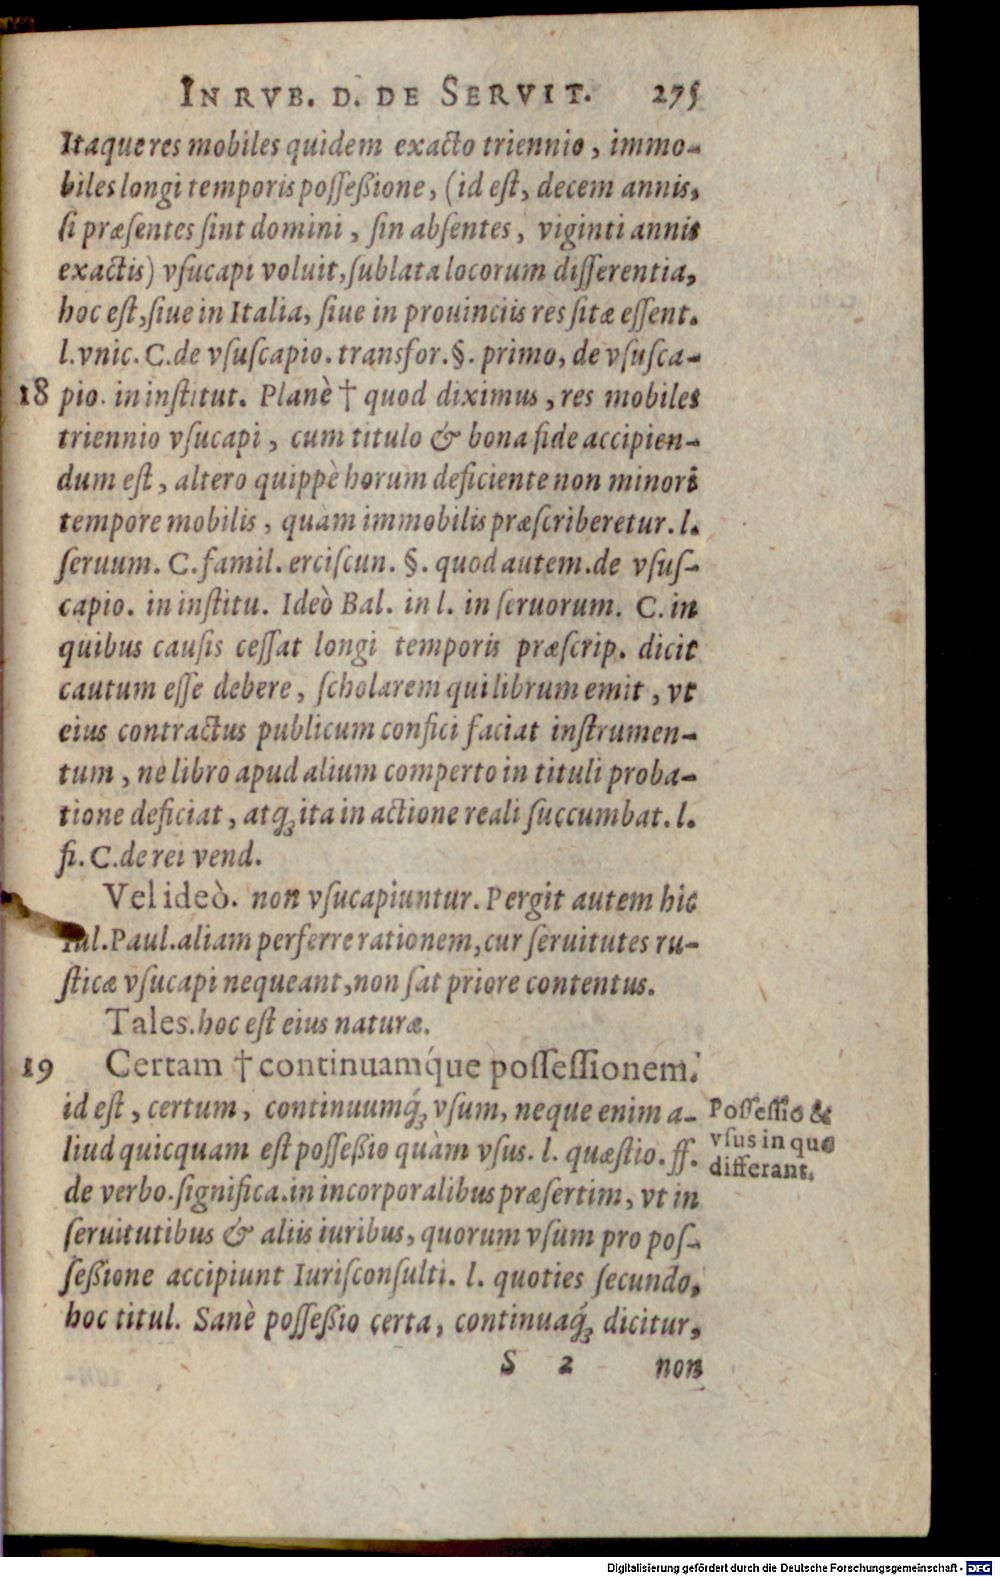 IN RVB. D. DE SERVIT. 275
Itaque res mobiles quidem exacto triennio, immo-
biles longi temporis possessione, (id est, decem annis,
si præsentes sint domini, sin absentes, viginti annis
exactis) vsucapi voluit, sublata locorum differentia,
hoc est, siue in Italia, siue in prouinciis res sitæ essent.
l. vnic. C. de vsuscapio. transfor. §. primo, de vsusca-
18 pio. in institut. Planè † quod diximus, res mobiles
triennio vsucapi, cum titulo & bona fide accipien-
dum est, altero quippè horum deficiente non minori
tempore mobilis, quàm immobilis præscriberetur. l.
seruum. C. famil. erciscun. §. quod autem. de vsus-
capio. in institu. Ideò Bal. in l. in seruorum. C. in
quibus causis cessat longi temporis præscrip. dicit
cautum esse debere, scholarem qui librum emit, vt
eius contractus publicum confici faciat instrumen-
tum, ne libro apud alium comperto in tituli proba-
tione deficiat, atq; ita in actione reali succumbat. l.
fi. C. de rei vend.
Vel ideò. non vsucapiuntur. Pergit autem hic
Iul. Paul. aliam perferre rationem, cur seruitutes ru-
sticæ vsucapi nequeant, non sat priore contentus.
Tales. hoc est eius naturæ.
19 Certam † continuamq́ue possessionem.
id est, certum, continuumq́; vsum, neque enim a-
liud quicquam est possessio quàm vsus. l. quæstio. ff.
de verbo. significa. in incorporalibus præsertim, vt in
seruitutibus & aliis iuribus, quorum vsum pro pos-
sessione accipiunt Iurisconsulti. l. quoties secundo,
hoc titul. Sanè possessio certa, continuaq́; dicitur,
S 2 non
Possessio &
vsus in quo
differant.
Digitalisierung gefördert durch die Deutsche Forschungsgemeinschaft - DFG